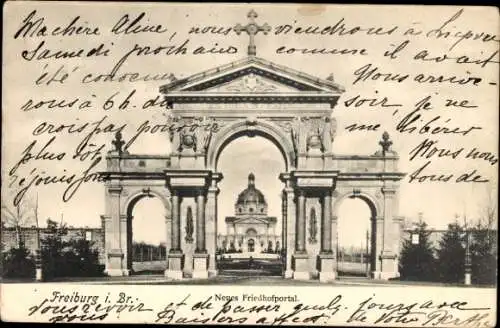 Ma chère Aline, nous viendrons à Liepvre
Samedi prochain comme il avait
été convenu
Nous arrive-
rons à 6h. du soir, je ne
crois pas pouvoir me libérer
plus tôt.
Nous nous
réjouissons
tous de
Freiburg i. Br.
Neues Friedhofportal.
vous revoir et de passer quelques jours avec
vous
Baisers affec. de nous tous